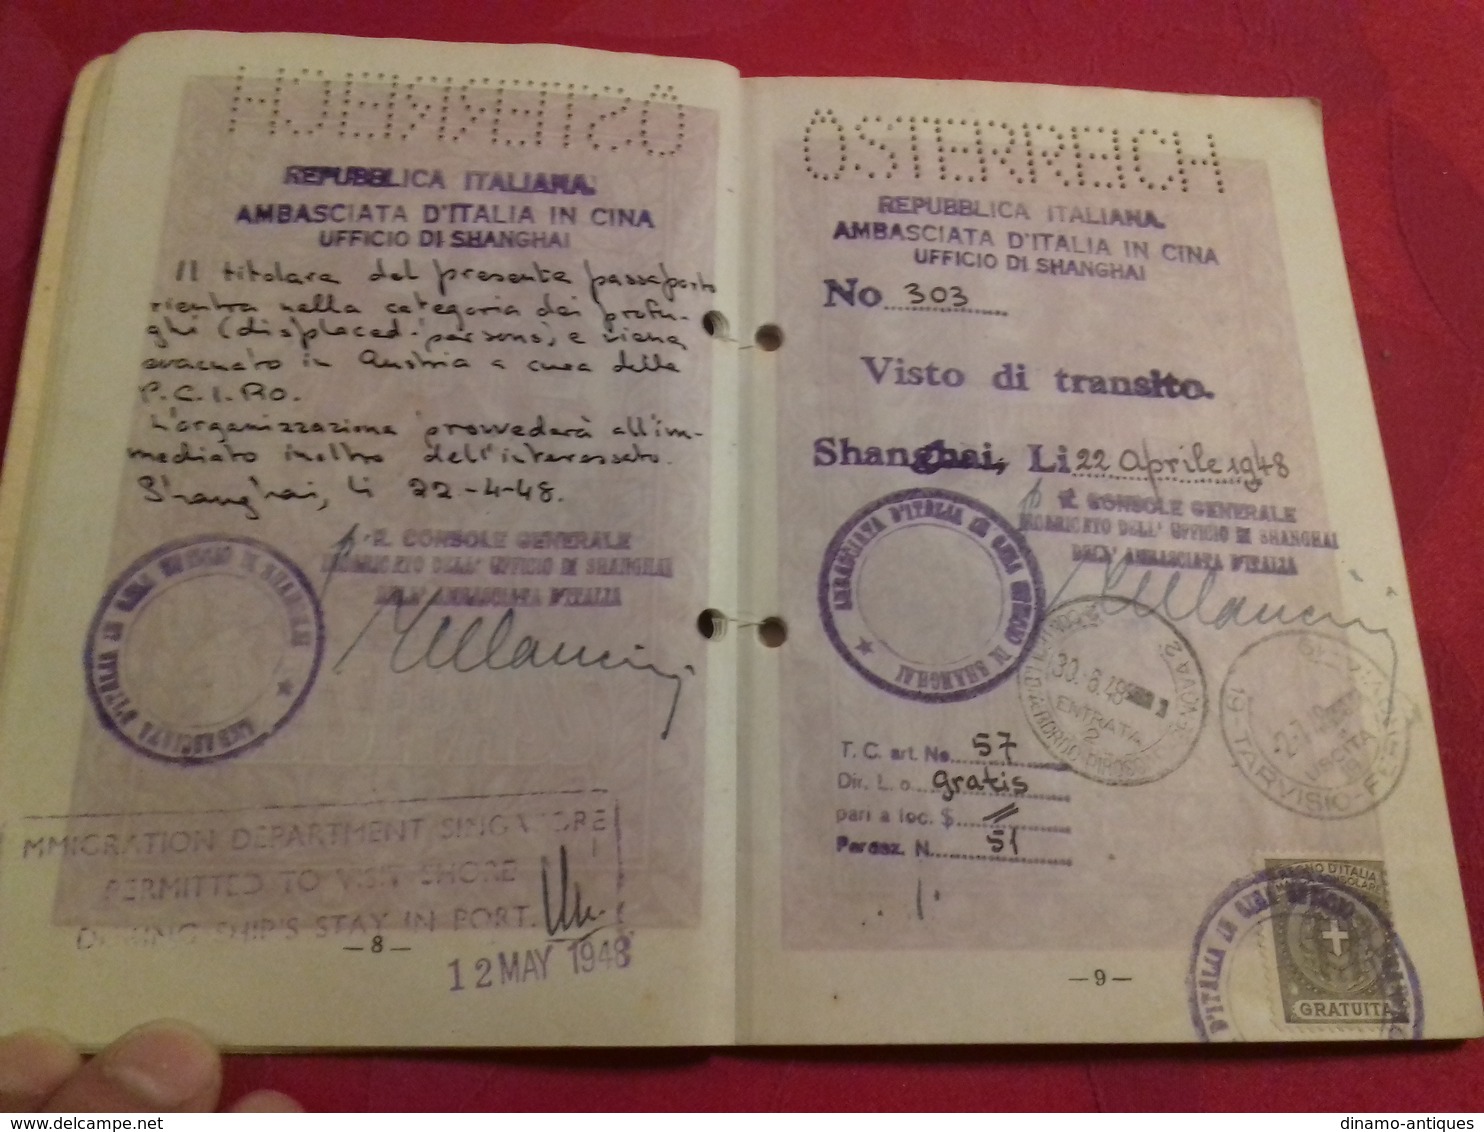 ÖSTERREICH
REPUBBLICA ITALIANA.
AMBASCIATA D'ITALIA IN CINA
UFFICIO DI SHANGHAI
Il titolare del presente passaporto
rientra nella categoria dei profu-
ghi (displaced-persons) e viene
evacuato in Austria a cura della
P.C.I.RO.
L'organizzazione provvederà all'im-
mediato inoltro dell'interessato.
Shanghai, li 22-4-48.
p. IL CONSOLE GENERALE
INCARICATO DELL' UFFICIO DI SHANGHAI
DELL' AMBASCIATA D'ITALIA
AMBASCIATA D'ITALIA IN CINA UFFICIO DI SHANGHAI
IMMIGRATION DEPARTMENT SINGAPORE
PERMITTED TO VISIT SHORE
DURING SHIP'S STAY IN PORT.
—8—
12 MAY 1948
ÖSTERREICH
REPUBBLICA ITALIANA.
AMBASCIATA D'ITALIA IN CINA
UFFICIO DI SHANGHAI
No 303
Visto di transito.
Shanghai, Li 22 aprile 1948
p. IL CONSOLE GENERALE
INCARICATO DELL' UFFICIO DI SHANGHAI
DELL' AMBASCIATA D'ITALIA
AMBASCIATA D'ITALIA IN CINA UFFICIO DI SHANGHAI
30.6.48
ENTRATA
2
19-TARVISIO-
USCITA
T. C. art. No. 57
Dir. L. o. gratis
pari a loc. $ //
Percez. N. 51
D'ITALIA IN CINA UFFICIO
REGNO D'ITALIA
GRATUITA
—9—
dinamo-antiques
© www.delcampe.net